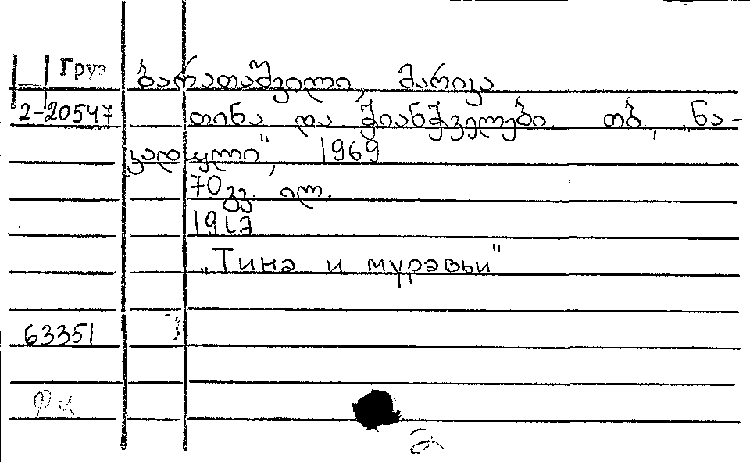 Груз ბარათაშვილი, მარიკა
2-20547 თინა და ჭიანჭველები თბ, „ნა-
კადული", 1969
70 გვ. ილ.
„Тина и муравьи"
63351